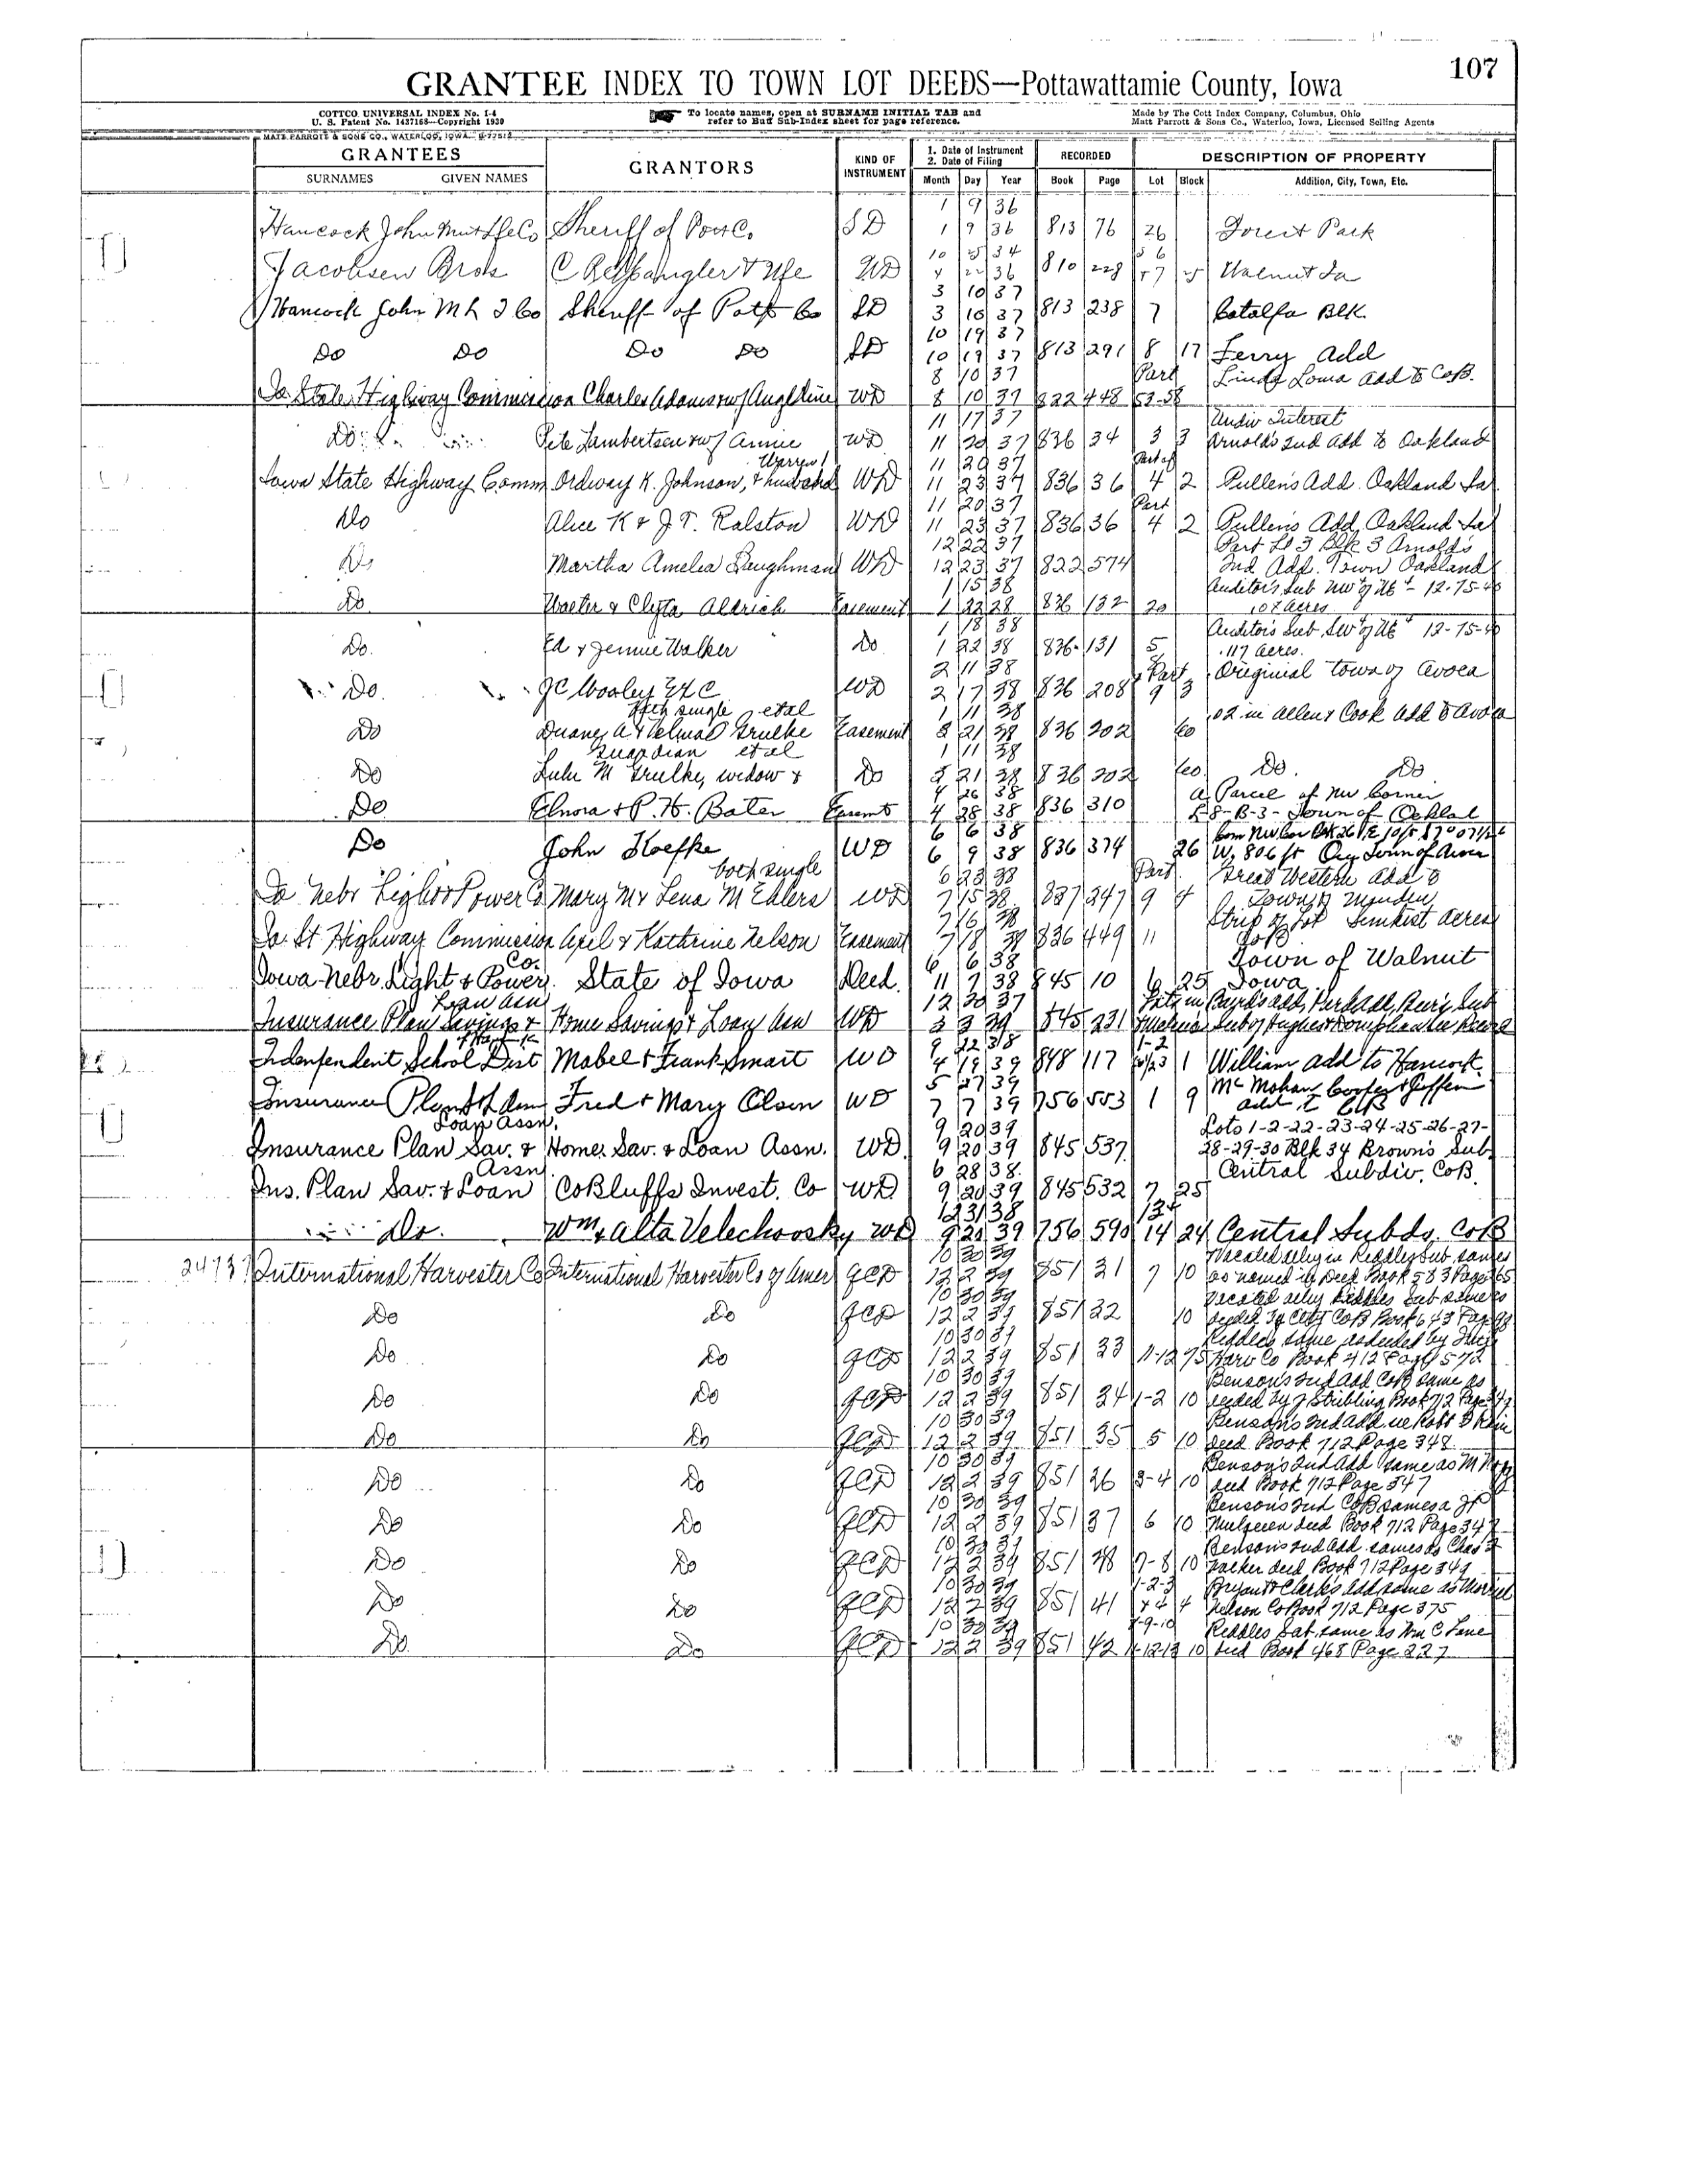 107
GRANTEE INDEX TO TOWN LOT DEEDS—Pottawattamie County, Iowa
COTTCO UNIVERSAL INDEX No. I-4
U. S. Patent No. 1437168—Copyright 1930
To locate names, open at SURNAME INITIAL TAB and
refer to Buff Sub-Index sheet for page reference.
Made by The Cott Index Company, Columbus, Ohio
Matt Parrott & Sons Co., Waterloo, Iowa, Licensed Selling Agents
MATT PARROTT & SONS CO., WATERLOO, IOWA
GRANTEES GRANTORS KIND OF INSTRUMENT 1. Date of Instrument 2. Date of Filing RECORDED DESCRIPTION OF PROPERTY
SURNAMES GIVEN NAMES Month Day Year Book Page Lot Block Addition, City, Town, Etc.
1 9 36
Hancock John Mut Life Co Sheriff of Pott Co. SD 1 9 36 813 76 26 Forest Park
10 5 34 5 6
Jacobsen Bros C & Wfe WD 4 22 36 810 228 + 7 5 Walnut Ia
3 10 37
Hancock John M L I Co Sheriff of Pott Co SD 3 10 37 813 238 7 Catalfa Blk.
10 19 37
Do Do Do Do SD 10 19 37 813 291 8 17 Ferry Add
8 10 37 Part Linda Loma Add to CoB.
Ia State Highway Commission Charles Adams sw/ WD 8 10 37 822 448 53-58
11 17 37 Undiv Interest
Do Pete Lambertsen sw/ Annie WD 11 20 37 836 34 3 3 Arnold's 2nd Add to Oakland
Warren I 11 20 37 Part of
Iowa State Highway Comm Ordway K. Johnson, & husband WD 11 23 37 836 36 4 2 Pullen's Add. Oakland Ia
11 20 37 Part
Do Alice K & J T. Ralston WD 11 23 37 836 36 4 2 Pullen's Add, Oakland Ia
12 22 37 Part Lt 3 Blk 3 Arnold's
Do Martha Amelia Baughman WD 12 23 37 822 574 2nd Add. Town Oakland
1 15 38 Auditor's Sub NW of NE 12-75-40
Do Walter & Clyta Aldrich Easement 1 22 38 836 132 20 .108 acres
1 18 38 Auditor's Sub. SW of NE 12-75-40
Do. Ed & Jennie Walker Do 1 22 38 836 131 5 .117 Acres.
2 11 38 Part Original town of Avoca
Do. J C Wooley WD 2 17 38 836 208 9 3
single etal 1 11 38 .02 in Allen & Cook Add to Avoca
Do Duane A & Velma Grulke Easement 21 38 836 202 60
Guardian et al 1 11 38
Do Lulu M Grulke, widow & Do 21 38 836 202 60 Do. Do
4 26 38 A Parcel of NW Corner
Do. Elnora & P. H. Bater Easmt 4 28 38 836 310 L-8-B-3- Town of Oakland
6 6 38
Do John Koefke WD 6 9 38 836 374 26 W, 806 ft Town of Avoca
both single 6 23 38 Part Great Western Add to
Ia Nebr Light & Power Co Mary M & Lena M Ehlers WD 7 15 38 837 247 9 4 Town of Minden
7 6 38 Strip of Lot Sunkist Acres
Ia. St Highway Commission Axel & Kathrine Nelson Easement 7 8 38 836 449 11 CoB
Co. 6 6 38 Town of Walnut
Iowa-Nebr. Light & Power State of Iowa Deed. 11 7 38 845 10 6 25 Iowa
Loan Asn 12 30 37
Insurance Plan Savings & Home Savings & Loan Asn WD 3 3 39 845 231
9 22 38 1-2
Independent School Dist Mabel & Frank Smart WD 4 19 39 848 117 1 William Add to Hancock.
5 27 39 McMahan Cooper & Jeffers
Insurance Plan Fred & Mary Olsen WD 7 7 39 756 553 1 9 Add to CoB
Loan Assn. 9 20 39 Lots 1-2-22-23-24-25-26-27-
Insurance Plan Sav. & Home Sav. & Loan Assn. WD. 9 20 39 845 537 28-29-30 Blk 34 Brown's Sub
Assn. 6 28 38 Central Subdiv. CoB.
Ins. Plan Sav. & Loan CoBluffs Invest. Co WD. 9 20 39 845 532 7 25
12 31 38 13+
Do. Wm & Alta Velechovsky WD 9 20 39 756 590 14 24 Central Subds. CoB
10 30 39 Vacated alley in Riddles Sub. same
24737 International Harvester Co International Harvester Co of Amer QCD 12 2 39 851 31 7 10 as named in Deed Book 583 Page 65
10 30 39 Vacated alley Riddles Sub same as
Do Do QCD 12 2 39 851 32 10 deeded by City CoB Book 643 Page 98
10 30 39 Riddles same as deeded by
Do Do QCD 12 2 39 851 33 11-12 Harv Co Book 412 Page 572
10 30 39 Benson's 2nd Add CoB same as
Do Do QCD 12 2 39 851 34 1-2 10 deeded by J Stribling Book 712 Page
10 30 39 Benson's 2nd Add
Do Do QCD 12 2 39 851 35 5 10 deed Book 712 Page 348
10 30 39 Benson's 2nd Add same as M
Do Do QCD 12 2 39 851 36 3-4 10 deed Book 712 Page 347
10 30 39 Benson's 2nd CoB same as
Do Do QCD 12 2 39 851 37 6 10 Mulqueen deed Book 712 Page 347
10 30 39 Benson's 2nd Add same as Chas
Do Do QCD 12 2 39 851 38 7-8 10 Walker deed Book 712 Page 349
10 30 39 1-2-3 Bryant & Clark's Add same as
Do Do QCD 12 2 39 851 41 + 4 4 Nelson Co Book 712 Page 375
10 30 39 8-9-10 Riddles Sub. same as Wm C Lane
Do. Do QCD 12 2 39 851 42 11-12-13 10 deed Book 468 Page 227